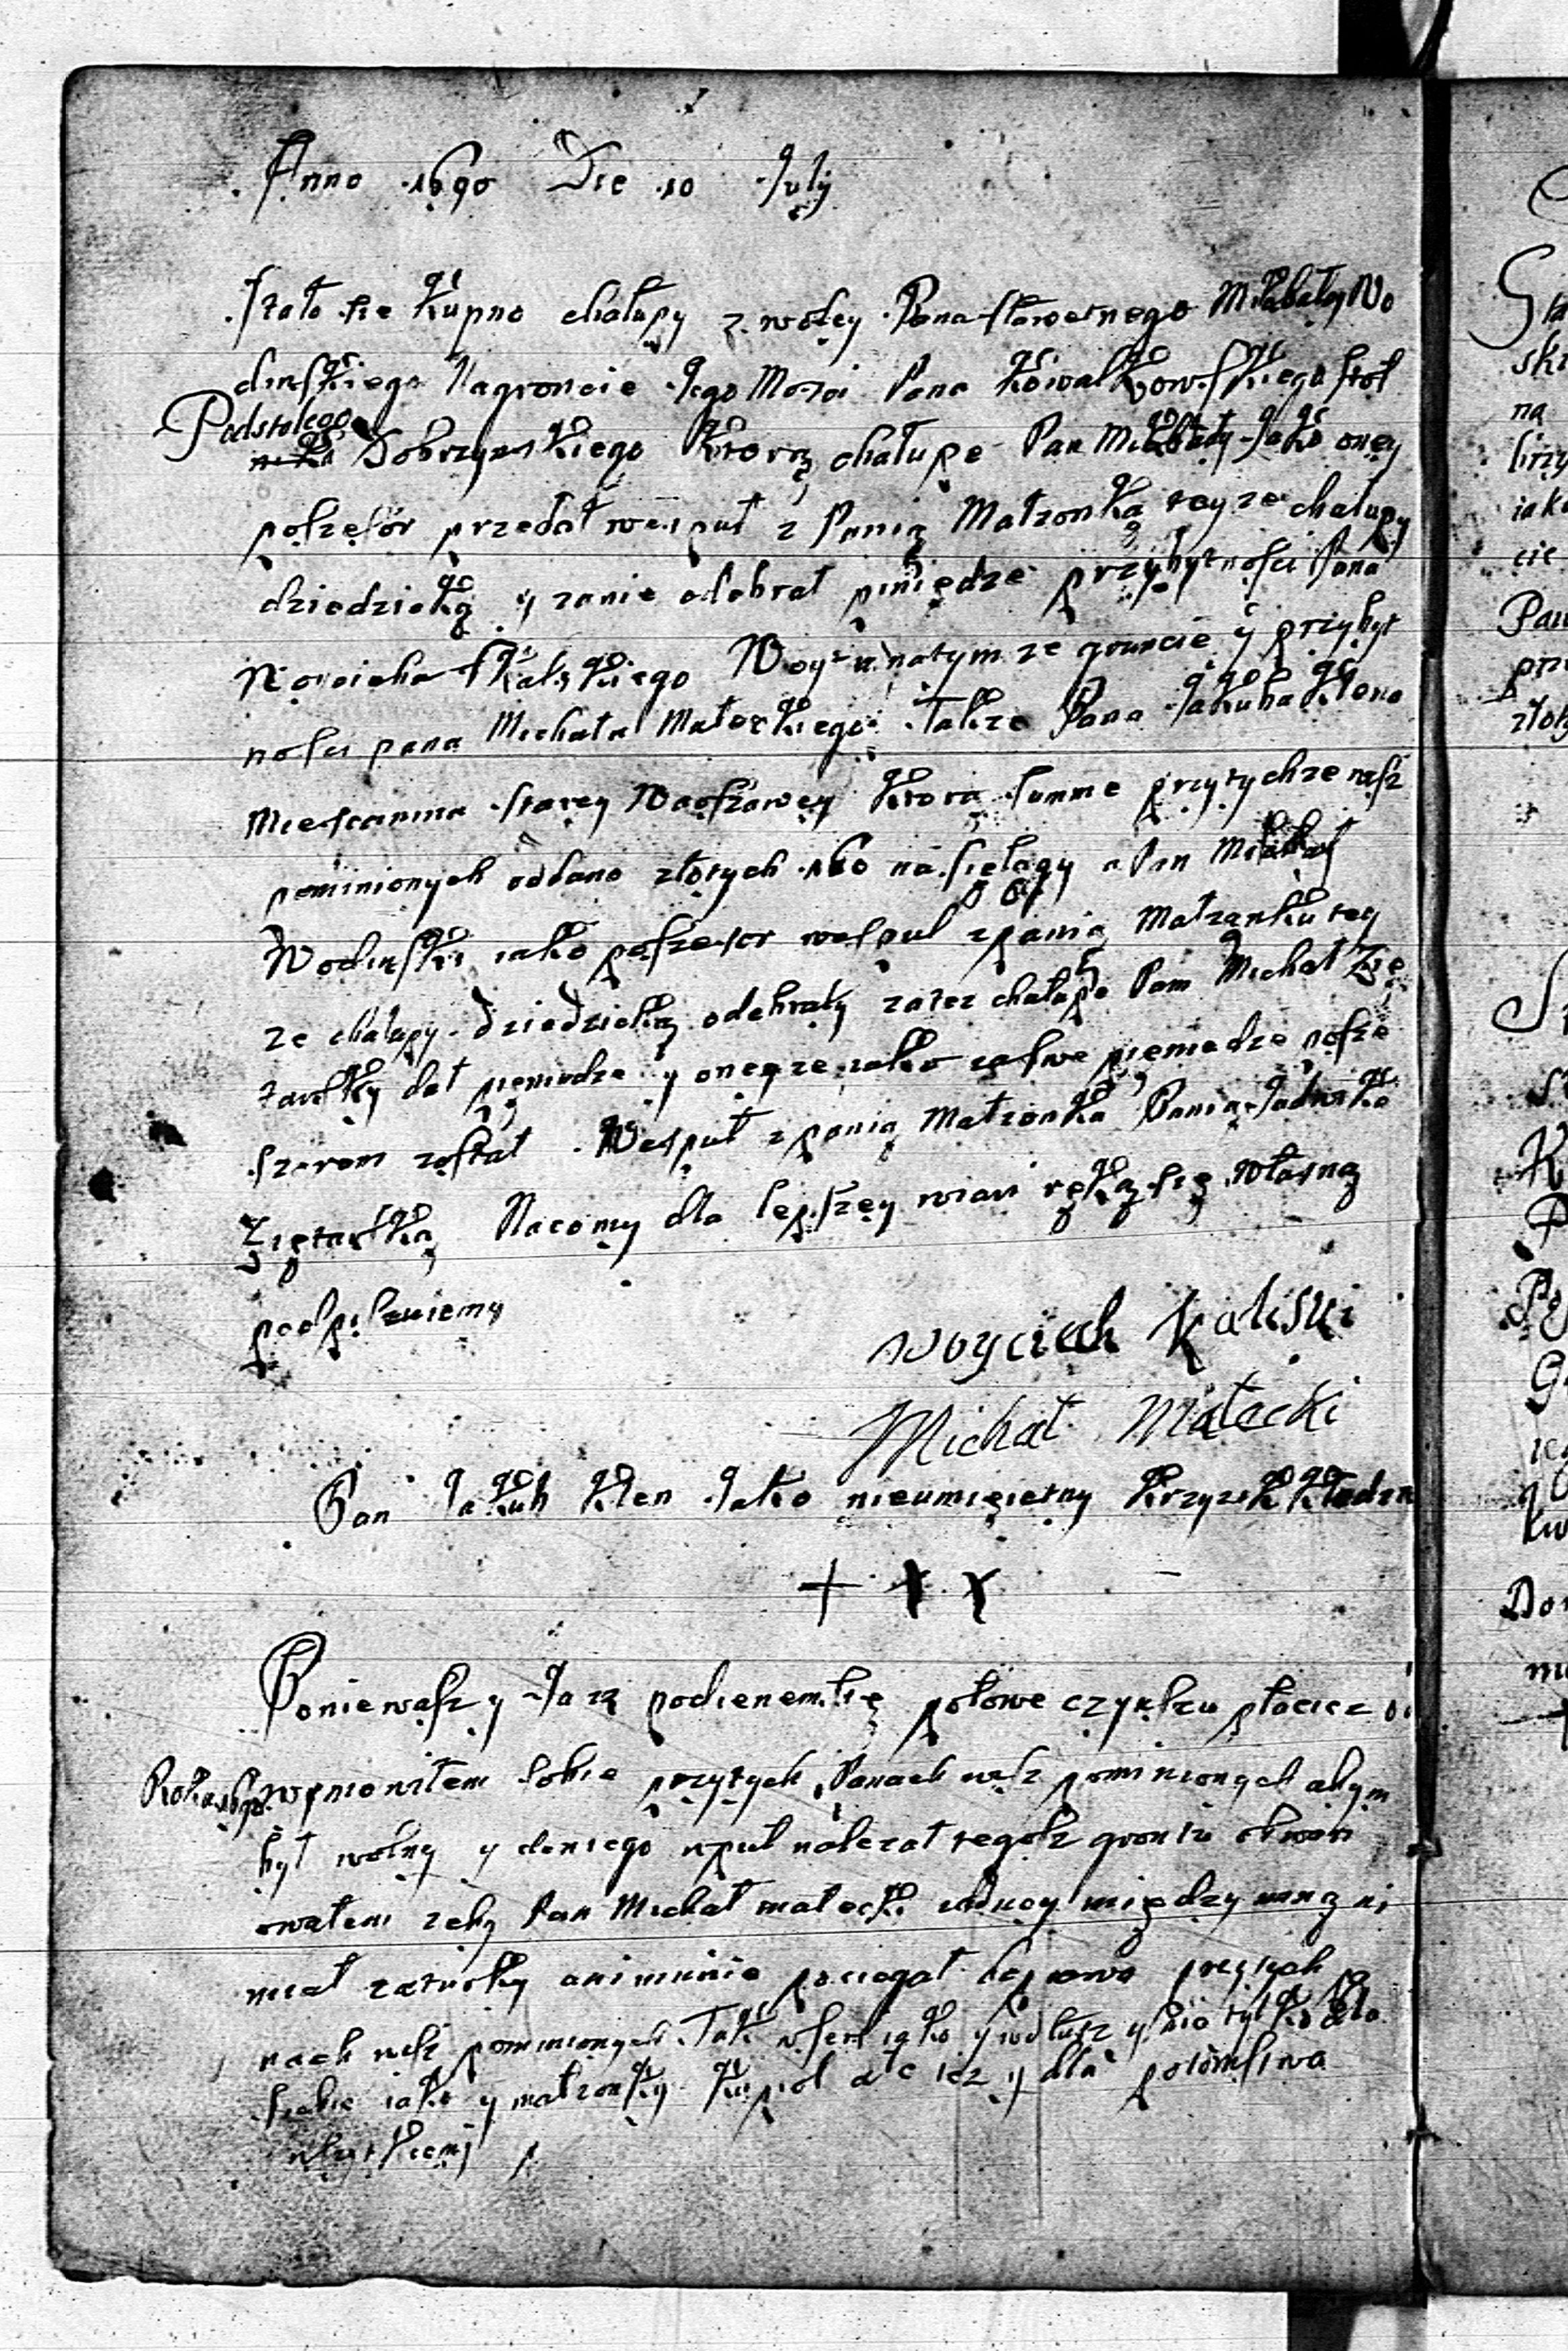 Anno 1690 Die 10 July
Stało sie kupno chałupy z woley Pana sławetnego Michała Wo
dinskiego Nagroncie Jego Mosci Pana Kowalkowskiego stol
Podstolego
nika Dobrzynskiego Ktorą chałupe Pan Michał Jako oney
poszesor przedał wespuł z Panią Małzonką teyze chałupy
dziedzicką y zanie odebrał piniędze przybytnosci Pana
Woyciecha Kaliskiego Woyta natymze gruncie y przybyt
nosci pana Michała Małeckiego Takze Pana Jakuba Klona
Miescanina starey Warszawey Ktora summe przytychze wysz
pominionych oddano złotych 160 na szelągy a Pan Michał
Wodinski iako poszesor wespuł zpanią Małzanką tey
ze chałupy Dziedzicką odebrały zatez chałupe Pan Michał Zię
tarsky dał pieniedze y oneyze iako zaswe pieniedze posze
szorem został Wespuł zpanią Małzonką Panią Jadwiką
Ziętarską Nacomy dla lepszey wiari ręką się własną
podpiszuiemy
woyciech Kaliski
Michał Małecki
Pan Jakub Klen Jako nieumięietny Krzyzik kładzie
+ + x
Poniewasz y Ja zą podienem się połowe czynszu płacicz
Roku wymowiłem sobie przytych Panach wysz pominionych abym
był wolny y doniego wpuł nalezał tegosz grontu obwar
owałem zeby Pan Michał małecki między mną ni
miał zatarsky animinie pociegał doprawa przytych
nach wisz pominionych Tak iako y y nie tylko dla
siebie iako y małzonky kupieł ale tez y dla potomstwa